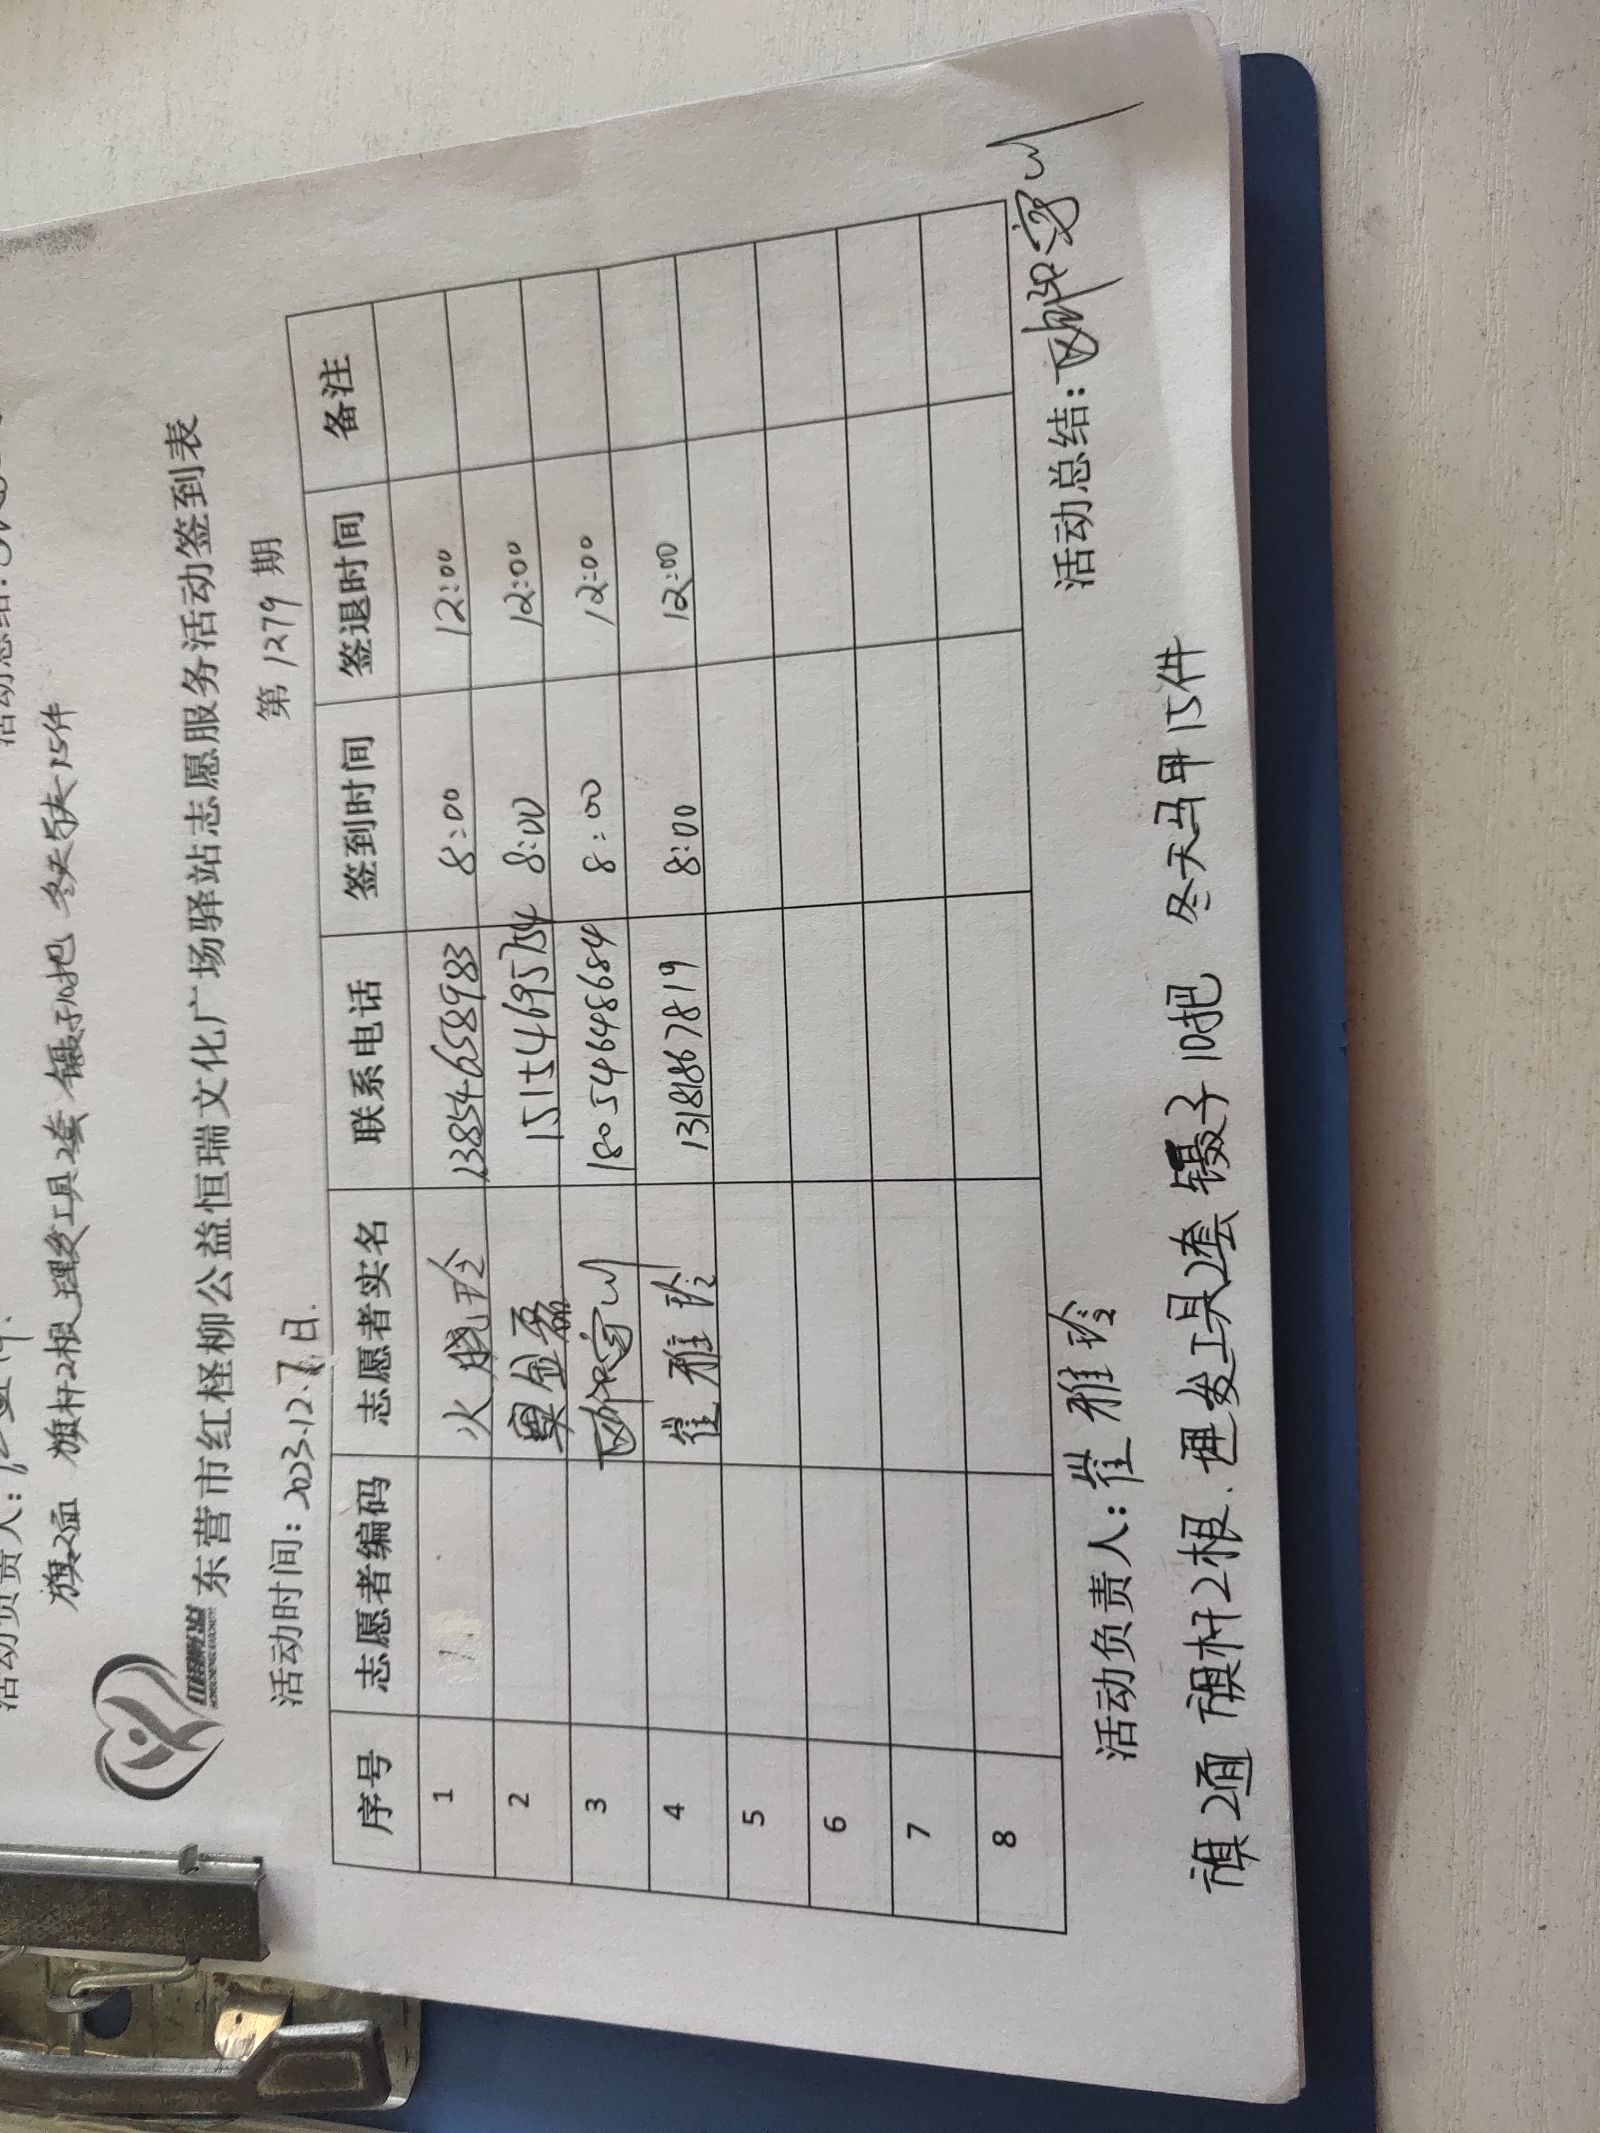 旗2面 旗杆2根 理发工具2套 镊子10把 冬天 15件
东营市红柽柳公益恒瑞文化广场驿站志愿服务活动签到表
活动时间：2023.12.7日. 第 1279 期
序号 志愿者编码 志愿者实名 联系电话 签到时间 签退时间 备注
1 火晓玲 13854658983 8:00 12:00
2 金磊 15154695754 8:00 12:00
3 18054648684 8:00 12:00
4 崔雅玲 13181867819 8:00 12:00
5
6
7
8
活动负责人：崔雅玲 活动总结：
旗2面 旗杆2根. 理发工具2套 镊子10把 冬天马甲15件